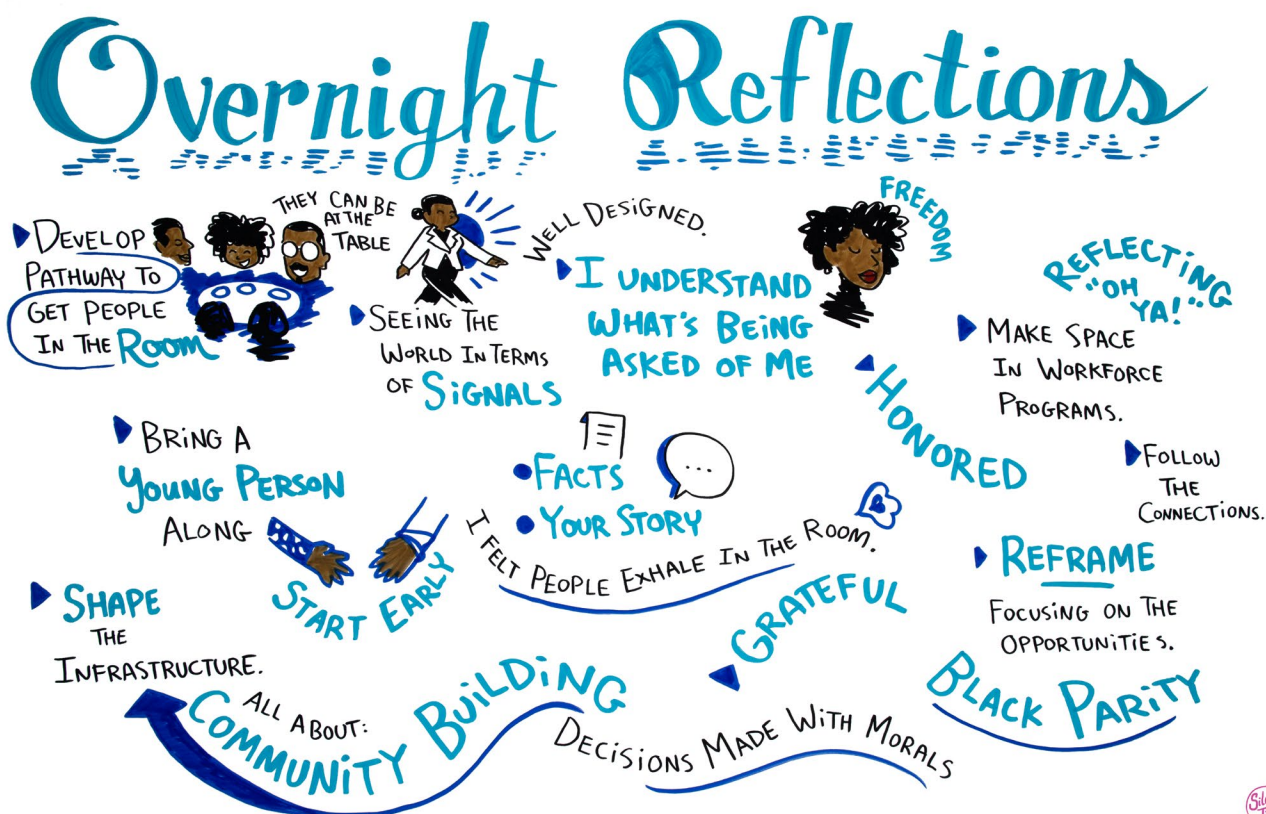 Overnight Reflections
DEVELOP
PATHWAY TO
GET PEOPLE
IN THE ROOM
THEY CAN BE
AT THE
TABLE
SEEING THE
WORLD IN TERMS
OF SIGNALS
WELL DESIGNED.
I UNDERSTAND
WHAT'S BEING
ASKED OF ME
FREEDOM
HONORED
REFLECTING
"OH
YA!"
MAKE SPACE
IN WORKFORCE
PROGRAMS.
FOLLOW
THE
CONNECTIONS.
BRING A
YOUNG PERSON
ALONG
START EARLY
FACTS
YOUR STORY
I FELT PEOPLE EXHALE IN THE ROOM.
REFRAME
FOCUSING ON THE
OPPORTUNITIES.
SHAPE
THE
INFRASTRUCTURE.
ALL ABOUT:
COMMUNITY BUILDING
GRATEFUL
DECISIONS MADE WITH MORALS
BLACK PARITY